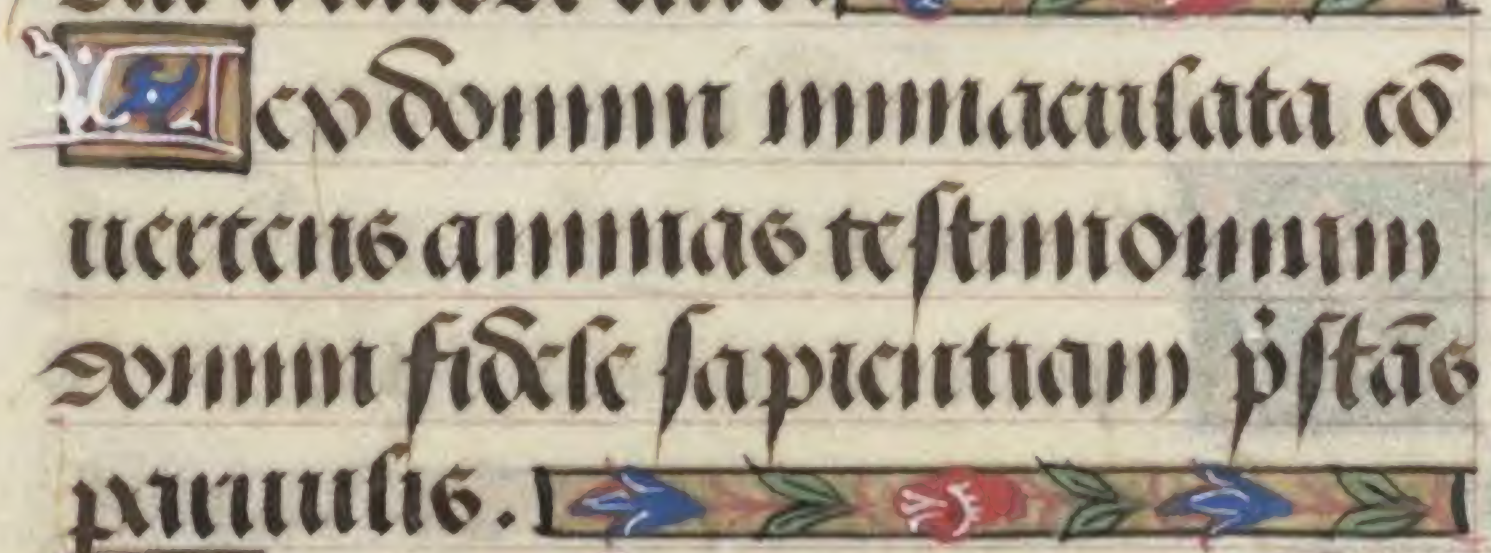 Lex domini inmaculata cō
uertens animas testimonium
domini fidele sapientiam p̓stās
paruulis.